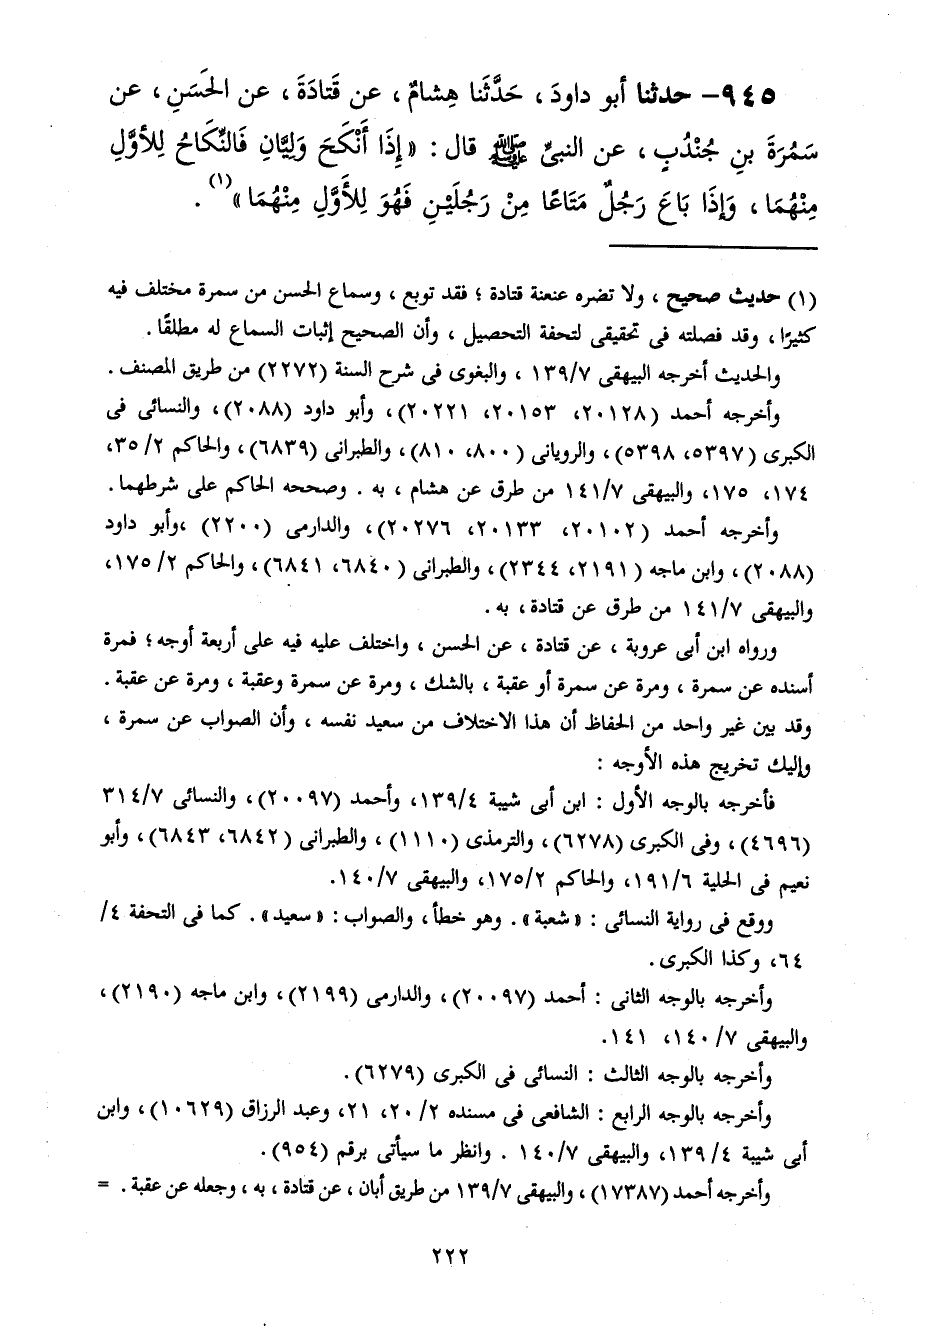 ٩٤٥- حدثنا أبو داودَ ، حَدَّثَنا هِشامٌ ، عن قَتَادَةَ ، عن الحَسَنِ ، عن
سَمُرَةَ بنِ جُنْدُبٍ ، عن النبىِّ ﷺ قال : «إِذَا أَنْكَحَ وَلِيَّانِ فَالنِّكَاحُ لِلأوَّلِ
مِنْهُمَا ، وَإِذَا بَاعَ رَجُلٌ مَتَاعًا مِنْ رَجُلَيْنِ فَهُوَ لِلأَوَّلِ مِنْهُمَا»(١) .
(١) حديث صحيح ، ولا تضره عنعنة قتادة ؛ فقد توبع ، وسماع الحسن من سمرة مختلف فيه
كثيرًا ، وقد فصلته فى تحقيقى لتحفة التحصيل ، وأن الصحيح إثبات السماع له مطلقًا .
والحديث أخرجه البيهقى ١٣٩/٧ ، والبغوى فى شرح السنة (٢٢٧٢) من طريق المصنف .
وأخرجه أحمد (٢٠١٢٨، ٢٠١٥٣، ٢٠٢٢١)، وأبو داود (٢٠٨٨)، والنسائى فى
الكبرى (٥٣٩٧، ٥٣٩٨)، والرويانى (٨٠٠، ٨١٠)، والطبرانى (٦٨٣٩)، والحاكم ٣٥/٢،
١٧٤، ١٧٥، والبيهقى ١٤١/٧ من طرق عن هشام ، به . وصححه الحاكم على شرطهما.
وأخرجه أحمد (٢٠١٠٢، ٢٠١٣٣، ٢٠٢٧٦)، والدارمى (٢٢٠٠) ،وأبو داود
(٢٠٨٨)، وابن ماجه (٢١٩١، ٢٣٤٤)، والطبرانى (٦٨٤٠، ٦٨٤١)، والحاكم ١٧٥/٢،
والبيهقى ١٤١/٧ من طرق عن قتادة ، به .
ورواه ابن أبى عروبة ، عن قتادة ، عن الحسن ، واختلف عليه فيه على أربعة أوجه ؛ فمرة
أسنده عن سمرة ، ومرة عن سمرة أو عقبة ، بالشك ، ومرة عن سمرة وعقبة ، ومرة عن عقبة .
وقد بين غير واحد من الحفاظ أن هذا الاختلاف من سعيد نفسه ، وأن الصواب عن سمرة ،
وإليك تخريج هذه الأوجه :
فأخرجه بالوجه الأول : ابن أبى شيبة ١٣٩/٤، وأحمد (٢٠٠٩٧)، والنسائى ٣١٤/٧
(٤٦٩٦)، وفى الكبرى (٦٢٧٨)، والترمذى (١١١٠)، والطبرانى (٦٨٤٢، ٦٨٤٣)، وأبو
نعيم فى الحلية ١٩١/٦، والحاكم ١٧٥/٢، والبيهقى ١٤٠/٧.
ووقع فى رواية النسائى : «شعبة» . وهو خطأ، والصواب : «سعيد» . كما فى التحفة ٤/
٦٤، وكذا الكبرى .
وأخرجه بالوجه الثانى : أحمد (٢٠٠٩٧)، والدارمى (٢١٩٩)، وابن ماجه (٢١٩٠)،
والبيهقى ١٤٠/٧، ١٤١.
وأخرجه بالوجه الثالث : النسائى فى الكبرى (٦٢٧٩).
وأخرجه بالوجه الرابع : الشافعى فى مسنده ٢٠/٢، ٢١، وعبد الرزاق (١٠٦٢٩)، وابن
أبى شيبة ١٣٩/٤، والبيهقى ١٤٠/٧ . وانظر ما سيأتى برقم (٩٥٤).
وأخرجه أحمد (١٧٣٨٧)، والبيهقى ١٣٩/٧ من طريق أبان ، عن قتادة ، به ، وجعله عن عقبة . =
٢٢٢